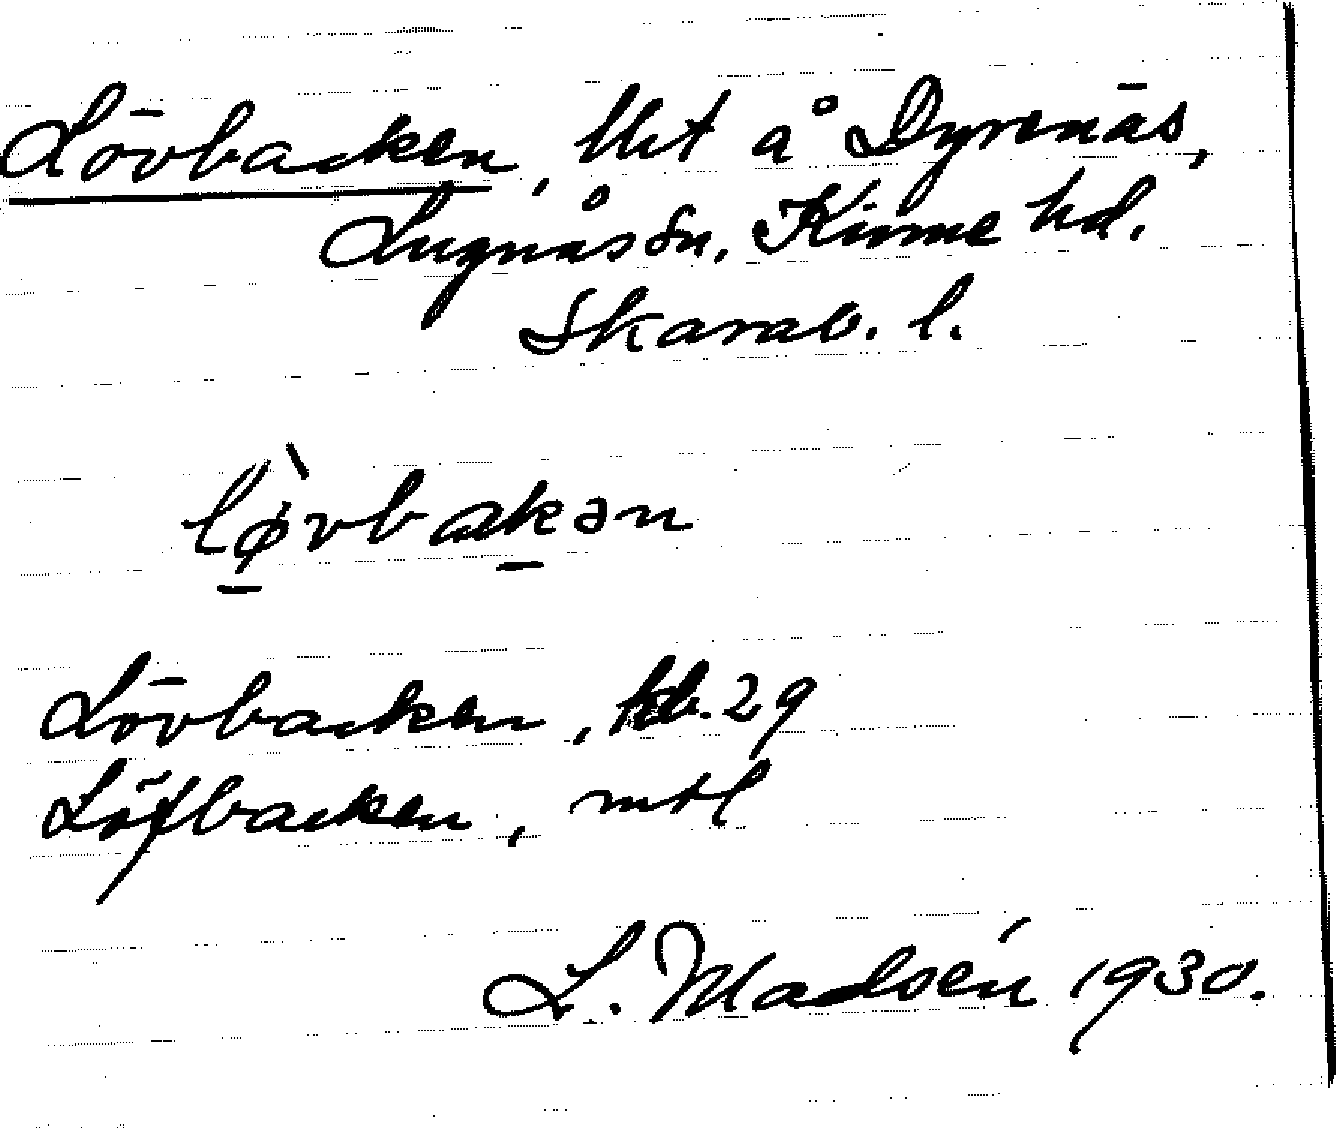 Lövbacken, lht å Dyrenäs,
Lugnås sn, Kinne hd.
Skarab. l.
lø̀vbakən
Lövbacken, kb. 29
Löfbacken, mtl
L. Madsén 1930.